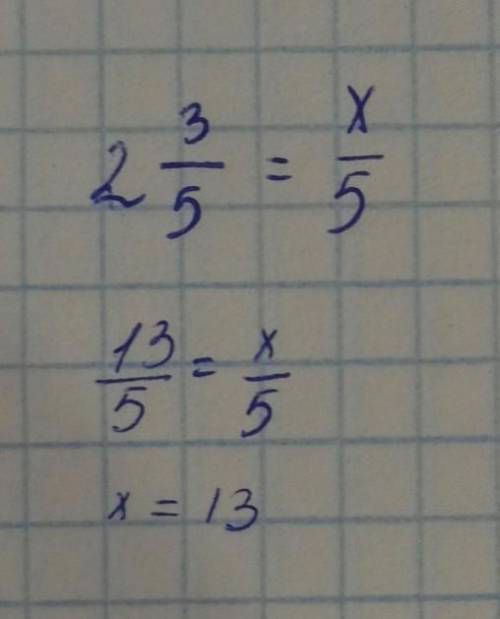 2 3/5 = x/5
13/5 = x/5
x = 13